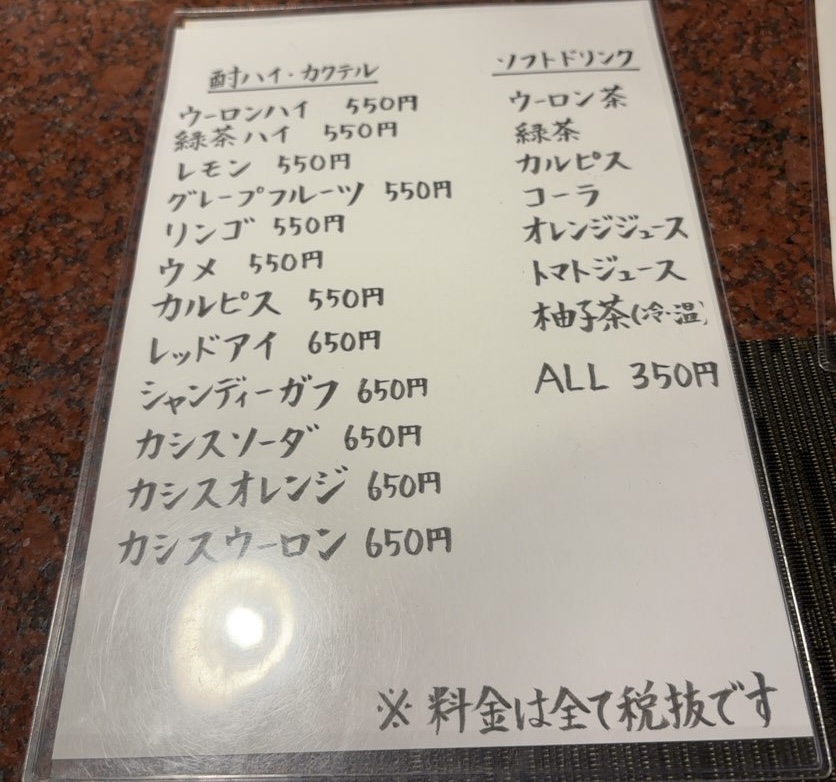 酎ハイ・カクテル
ウーロンハイ 550円
緑茶ハイ 550円
レモン 550円
グレープフルーツ 550円
リンゴ 550円
ウメ 550円
カルピス 550円
レッドアイ 650円
シャンディーガフ 650円
カシスソーダ 650円
カシスオレンジ 650円
カシスウーロン 650円
ソフトドリンク
ウーロン茶
緑茶
カルピス
コーラ
オレンジジュース
トマトジュース
柚子茶(冷・温)
ALL 350円
※ 料金は全て税抜です